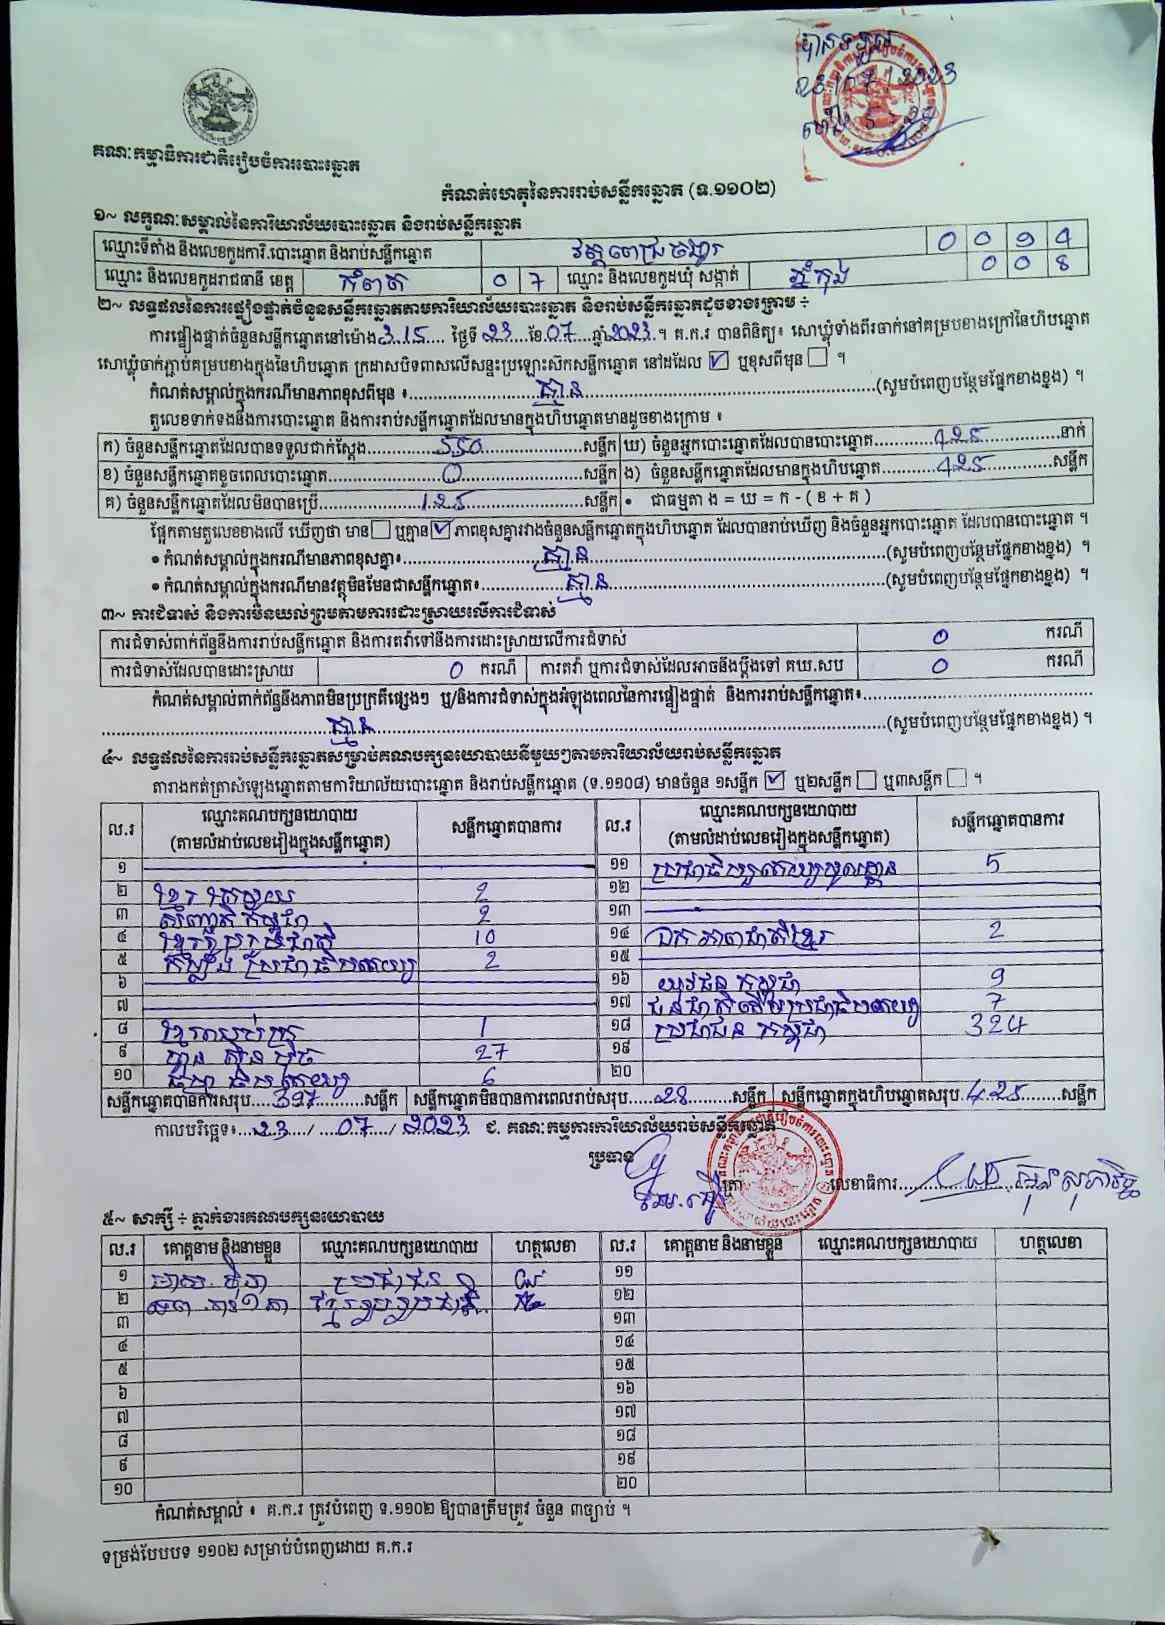 បានទទួល
23/07/2023
ម៉ោង
គណៈកម្មាធិការជាតិរៀបចំការបោះឆ្នោត
កំណត់ហេតុនៃការរាប់សន្លឹកឆ្នោត (ទ.១១០២)
១~ លក្ខណៈសម្គាល់នៃការិយាល័យបោះឆ្នោត និងរាប់សន្លឹកឆ្នោត
ឈ្មោះទីតាំង និងលេខកូដការិ.បោះឆ្នោត និងរាប់សន្លឹកឆ្នោត
ឈ្មោះ និងលេខកូដរាជធានី ខេត្ត កំពត 0 7 ឈ្មោះ និងលេខកូដឃុំ សង្កាត់ ភ្នំកុង 0 0 8
២~ លទ្ធផលនៃការផ្ទៀងផ្ទាត់ចំនួនសន្លឹកឆ្នោតតាមការិយាល័យបោះឆ្នោត និងរាប់សន្លឹកឆ្នោតដូចខាងក្រោម ÷
ការផ្ទៀងផ្ទាត់ចំនួនសន្លឹកឆ្នោតនៅម៉ោង 3:15 ថ្ងៃទី 23 ខែ 07 ឆ្នាំ 2023 ។ គ.ក.រ បានពិនិត្យ៖ សោឃ្លុំទាំងពីរចាក់នៅគម្របខាងក្រៅនៃហិបឆ្នោត
សោឃ្លុំចាក់ភ្ជាប់គម្របខាងក្នុងនៃហិបឆ្នោត ក្រដាសបិទពាសលើសន្ទះប្រឡោះស៊កសន្លឹកឆ្នោត នៅដដែល ☑ ឬខុសពីមុន ☐ ។
កំណត់សម្គាល់ក្នុងករណីមានភាពខុសពីមុន ៖ គ្មាន (សូមបំពេញបន្ថែមផ្នែកខាងខ្នង) ។
តួលេខទាក់ទងនឹងការបោះឆ្នោត និងការរាប់សន្លឹកឆ្នោតដែលមានក្នុងហិបឆ្នោតមានដូចខាងក្រោម ៖
ក) ចំនួនសន្លឹកឆ្នោតដែលបានទទួលជាក់ស្តែង 550 សន្លឹក ឃ) ចំនួនអ្នកបោះឆ្នោតដែលបានបោះឆ្នោត 425 នាក់
ខ) ចំនួនសន្លឹកឆ្នោតខូចពេលបោះឆ្នោត 0 សន្លឹក ង) ចំនួនសន្លឹកឆ្នោតដែលមានក្នុងហិបឆ្នោត 425 សន្លឹក
គ) ចំនួនសន្លឹកឆ្នោតដែលមិនបានប្រើ 125 សន្លឹក • ជាធម្មតា ង = ឃ = ក - ( ខ + គ )
ផ្អែកតាមតួលេខខាងលើ ឃើញថា មាន ☐ ឬគ្មាន ☑ ភាពខុសគ្នារវាងចំនួនសន្លឹកឆ្នោតក្នុងហិបឆ្នោត ដែលបានរាប់ឃើញ និងចំនួនអ្នកបោះឆ្នោត ដែលបានបោះឆ្នោត ។
• កំណត់សម្គាល់ក្នុងករណីមានភាពខុសគ្នា៖ គ្មាន (សូមបំពេញបន្ថែមផ្នែកខាងខ្នង) ។
• កំណត់សម្គាល់ក្នុងករណីមានវត្ថុមិនមែនជាសន្លឹកឆ្នោត៖ គ្មាន (សូមបំពេញបន្ថែមផ្នែកខាងខ្នង) ។
៣~ ការជំទាស់ និងការមិនយល់ព្រមតាមការដោះស្រាយលើការជំទាស់
ការជំទាស់ពាក់ព័ន្ធនឹងការរាប់សន្លឹកឆ្នោត និងការតវ៉ាទៅនឹងការដោះស្រាយលើការជំទាស់ 0 ករណី
ការជំទាស់ដែលបានដោះស្រាយ 0 ករណី ការតវ៉ា ឬការជំទាស់ដែលអាចនឹងប្តឹងទៅ គឃ.សប 0 ករណី
កំណត់សម្គាល់ពាក់ព័ន្ធនឹងភាពមិនប្រក្រតីផ្សេងៗ ឬ/និងការជំទាស់ក្នុងអំឡុងពេលនៃការផ្ទៀងផ្ទាត់ និងការរាប់សន្លឹកឆ្នោត៖
គ្មាន (សូមបំពេញបន្ថែមផ្នែកខាងខ្នង) ។
៤~ លទ្ធផលនៃការរាប់សន្លឹកឆ្នោតសម្រាប់គណបក្សនយោបាយនីមួយៗតាមការិយាល័យរាប់សន្លឹកឆ្នោត
តារាងកត់ត្រាសំឡេងឆ្នោតតាមការិយាល័យបោះឆ្នោត និងរាប់សន្លឹកឆ្នោត (ទ.១១០៨) មានចំនួន ១សន្លឹក ☑ ឬ២សន្លឹក ☐ ឬ៣សន្លឹក ☐ ។
ល.រ ឈ្មោះគណបក្សនយោបាយ (តាមលំដាប់លេខរៀងក្នុងសន្លឹកឆ្នោត) សន្លឹកឆ្នោតបានការ ល.រ ឈ្មោះគណបក្សនយោបាយ (តាមលំដាប់លេខរៀងក្នុងសន្លឹកឆ្នោត) សន្លឹកឆ្នោតបានការ
១ ១១ 5
២ ខ្មែរ 2 ១២
៣ កម្ពុជា 2 ១៣
៤ 10 ១៤ ឯកភាពជាតិខ្មែរ 2
៥ កម្លាំង ប្រជាធិបតេយ្យ 2 ១៥
៦ ១៦ យុវជន កម្ពុជា 9
៧ ១៧ ជនជាតិដើមប្រជាធិបតេយ្យ 7
៨ ខ្មែរឈប់ក្រ 1 ១៨ ប្រជាជន កម្ពុជា 324
៩ ហ្វ៊ុន ស៊ិន ប៉ិច 27 ១៩
១០ 6 ២០
សន្លឹកឆ្នោតបានការសរុប 397 សន្លឹក សន្លឹកឆ្នោតមិនបានការពេលរាប់សរុប 28 សន្លឹក សន្លឹកឆ្នោតក្នុងហិបឆ្នោតសរុប 425 សន្លឹក
កាលបរិច្ឆេទ៖ 23 / 07 / 2023 ជ. គណៈកម្មការការិយាល័យរាប់សន្លឹកឆ្នោត
ប្រធាន
ត្រា លេខាធិការ
៥~ សាក្សី ÷ ភ្នាក់ងារគណបក្សនយោបាយ
ល.រ គោត្តនាម និងនាមខ្លួន ឈ្មោះគណបក្សនយោបាយ ហត្ថលេខា ល.រ គោត្តនាម និងនាមខ្លួន ឈ្មោះគណបក្សនយោបាយ ហត្ថលេខា
១ ប្រជាជន ១១
២ ១២
៣ ១៣
៤ ១៤
៥ ១៥
៦ ១៦
៧ ១៧
៨ ១៨
៩ ១៩
១០ ២០
កំណត់សម្គាល់ ៖ គ.ក.រ ត្រូវបំពេញ ទ.១១០២ ឱ្យបានត្រឹមត្រូវ ចំនួន ៣ច្បាប់ ។
ទម្រង់បែបបទ ១១០២ សម្រាប់បំពេញដោយ គ.ក.រ